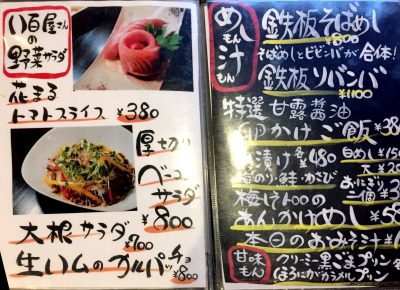 い百屋さん
の
野菜サラダ
花まる
トマトスライス ¥380
厚切り
ベーコン
サラダ
¥800
大根サラダ
¥700
生ハムのカルパッチョ
¥800
めしもん
汁もん
鉄板そばめし
¥800
そばめしとビビンバが合体!
鉄板ソバンバ
¥1100
特選 甘露醤油
卵かけご飯 ¥38
茶漬け 各¥480
梅・のり・鮭・わさび
白めし ¥15
大 ¥2
おにぎり
一個 ¥3
梅そぼろの
あんかけめし ¥58
本日のおみそ汁 ¥1
甘味もん
クリーミー黒ごまプリン
ほろにがカラメルプリン